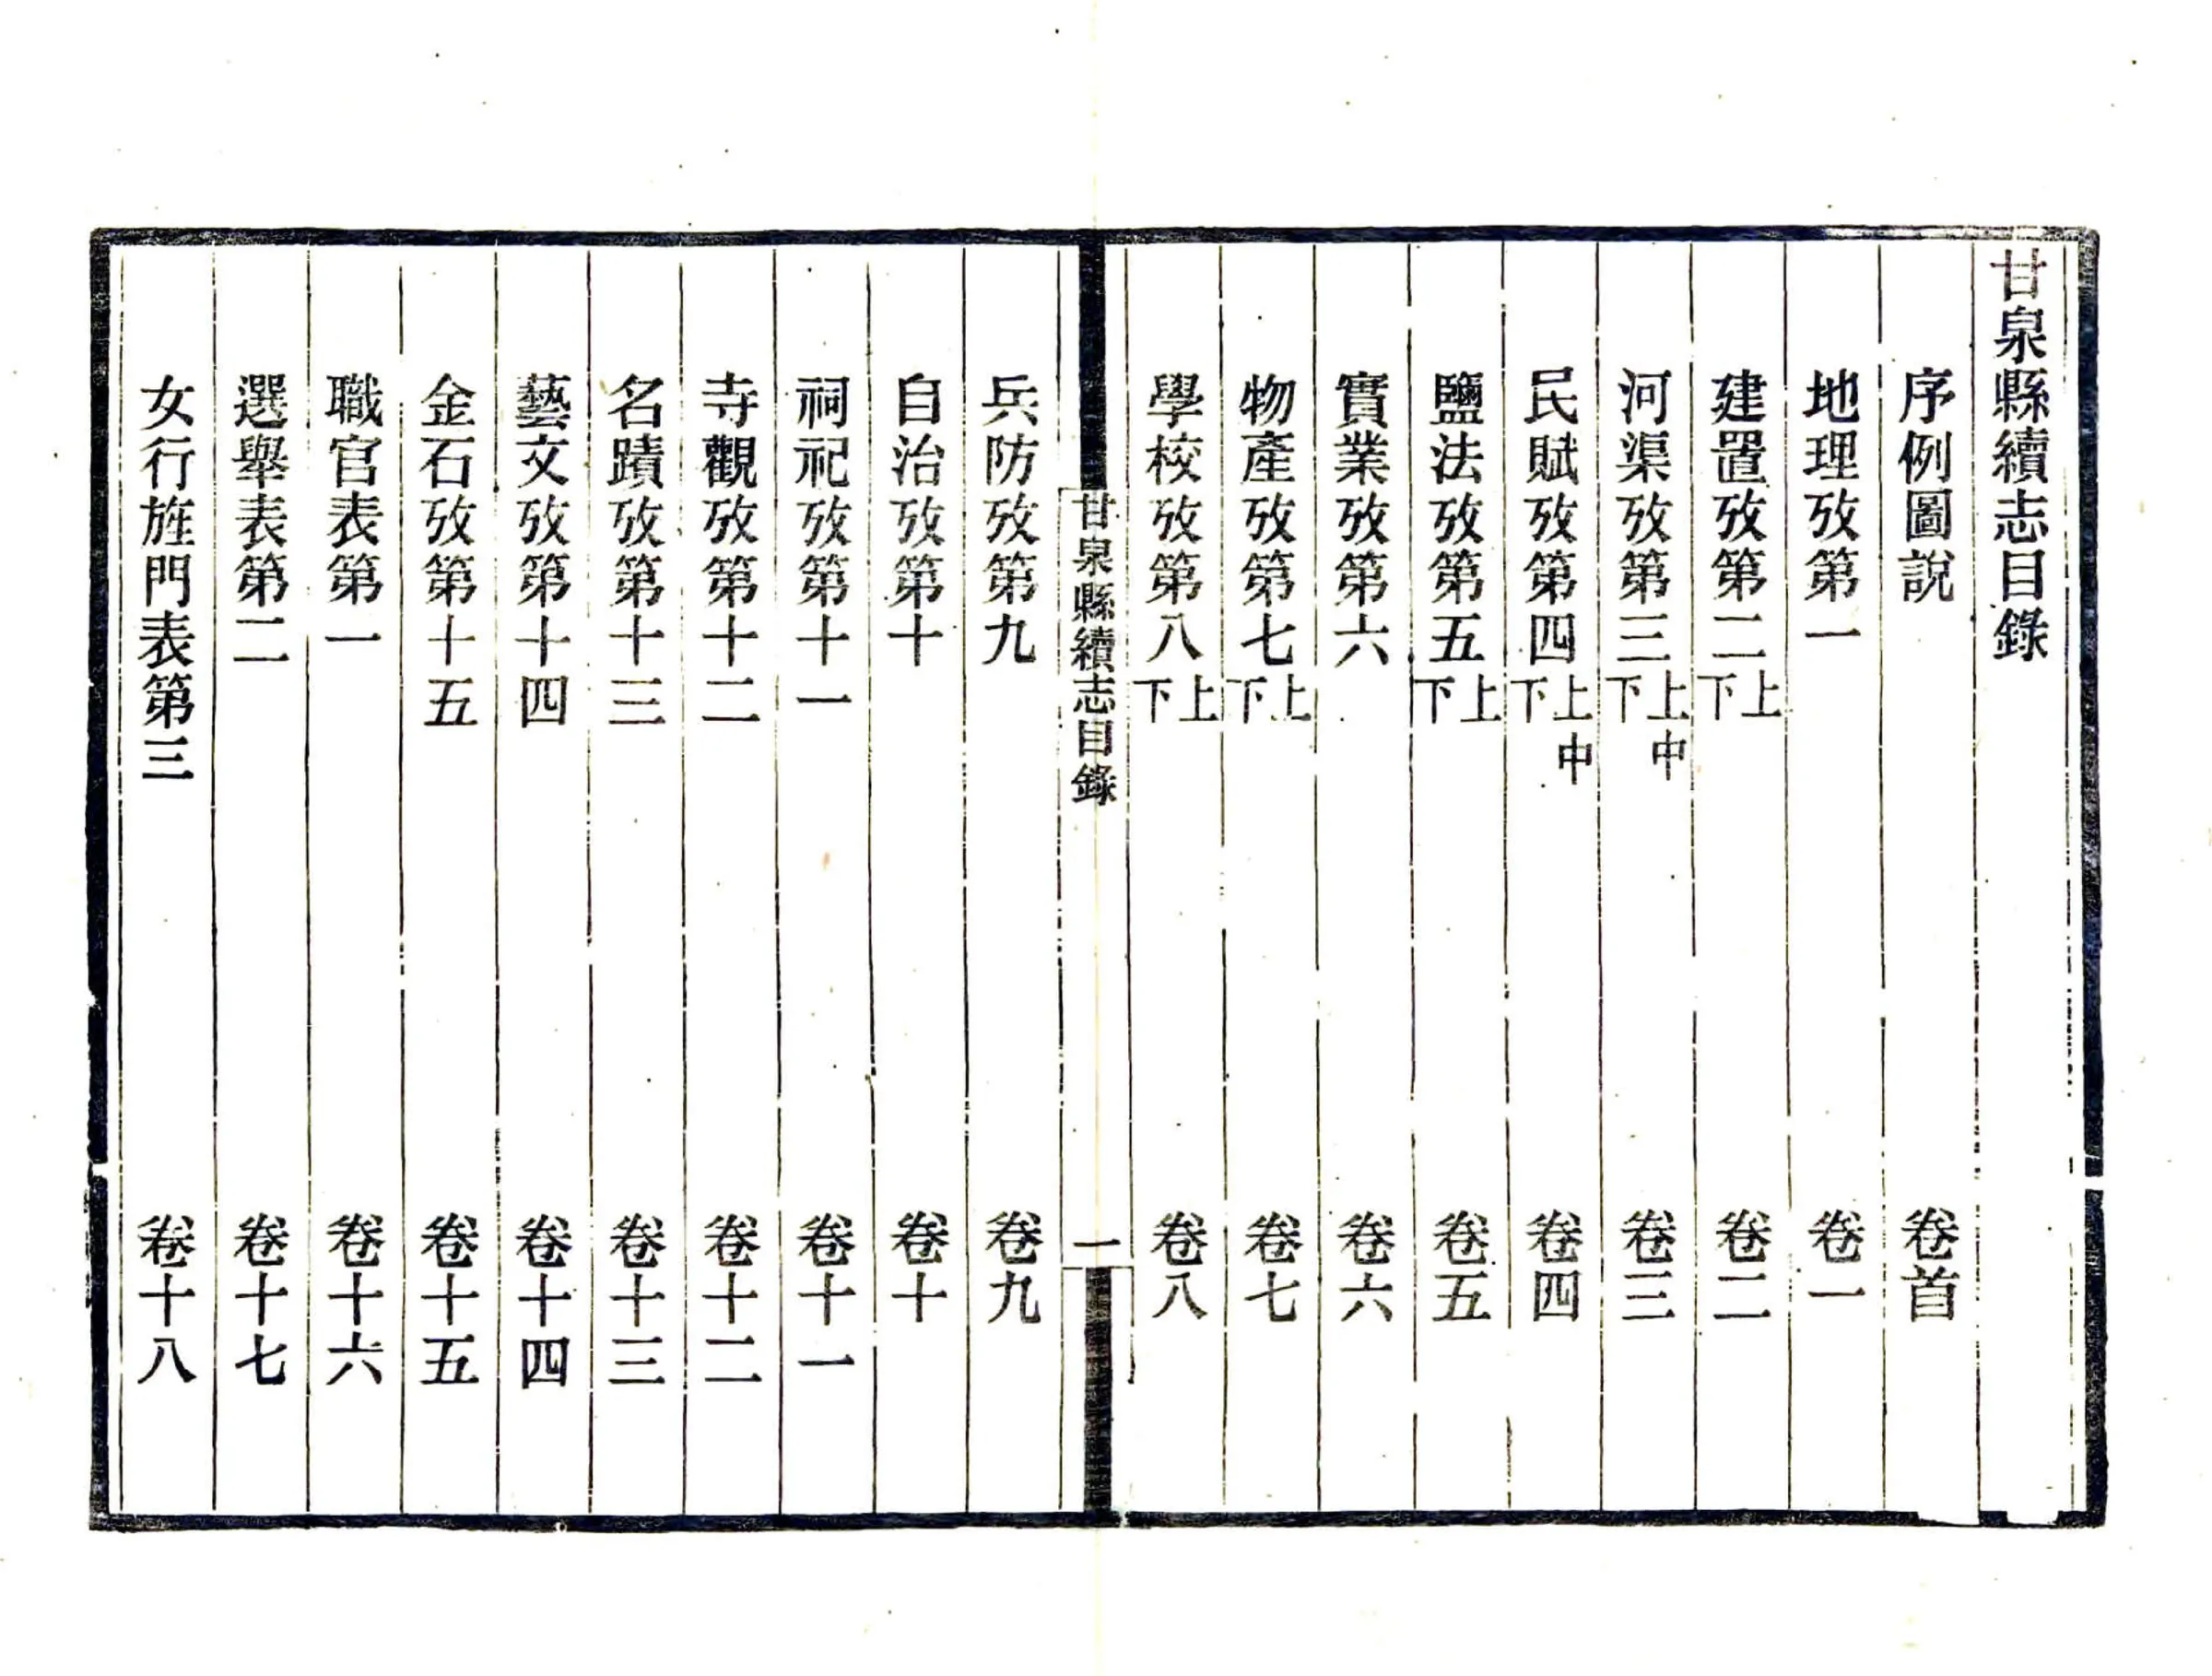 甘泉縣續志目錄
序例圖說 卷首
地理攷第一 卷一
建置攷第二上下 卷二
河渠攷第三上中下 卷三
民賦攷第四上中下 卷四
鹽法攷第五上下 卷五
實業攷第六 卷六
物產攷第七上下 卷七
學校攷第八上下 卷八
甘泉縣續志目錄 一
兵防攷第九 卷九
自治攷第十 卷十
祠祀攷第十一 卷十一
寺觀攷第十二 卷十二
名蹟攷第十三 卷十三
藝文攷第十四 卷十四
金石攷第十五 卷十五
職官表第一 卷十六
選舉表第二 卷十七
女行旌門表第三 卷十八